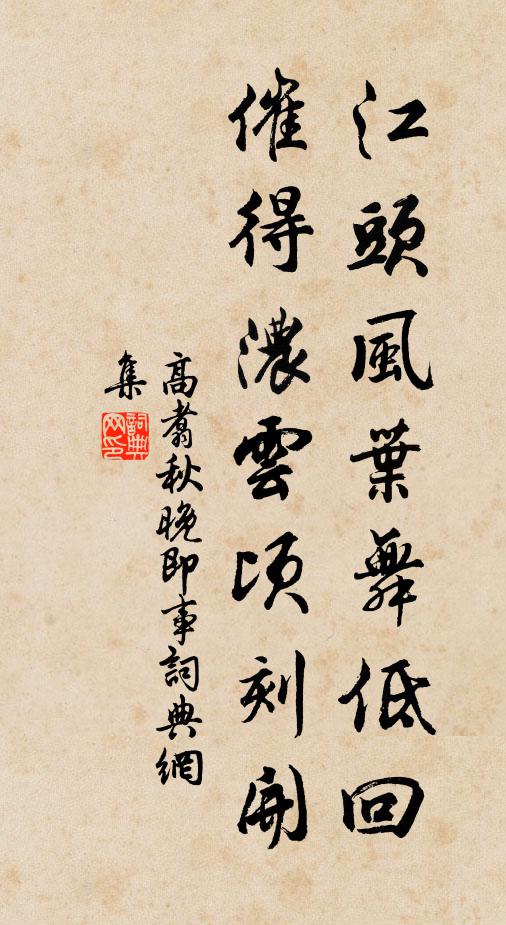 江頭風葉舞低回
催得濃雲頃刻開
高翥秋晚即事詞典網
集
詞典
网印